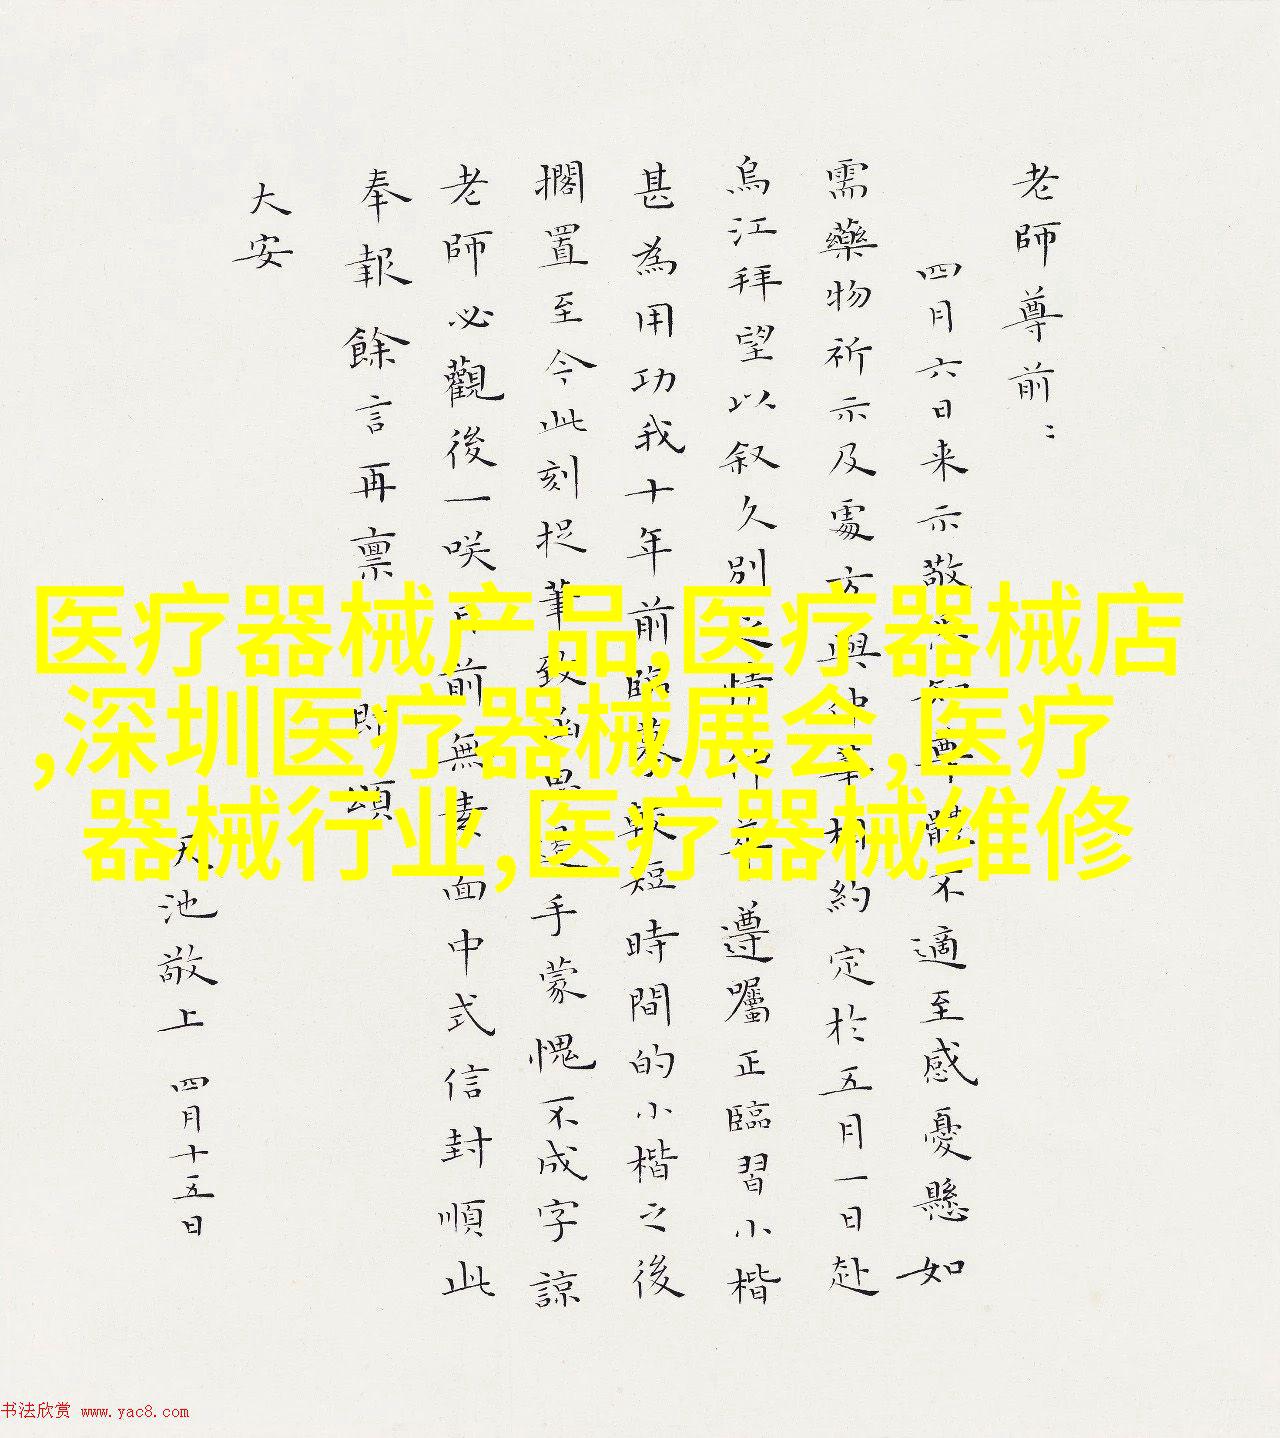 老師尊前：
四月六日来示敬悉知尊體不適至感憂懸如
需藥物祈示及處方興仲華相約定於五月一日赴
烏江拜望以叙久別之情仲華遵囑正臨習小楷
甚為用功我十年前臨摹一段短時間的小楷之後
擱置至今此刻捉筆致函思遲手蒙愧不成字諒
老師必觀後一咲目前無素面中式信封順此
奉報餘言再禀即頌
大安
天池敬上 四月十五日
医疗器械产品,医疗器械店
,深圳医疗器械展会,医疗
器械行业,医疗器械维修
书法欣赏 www.yac8.com